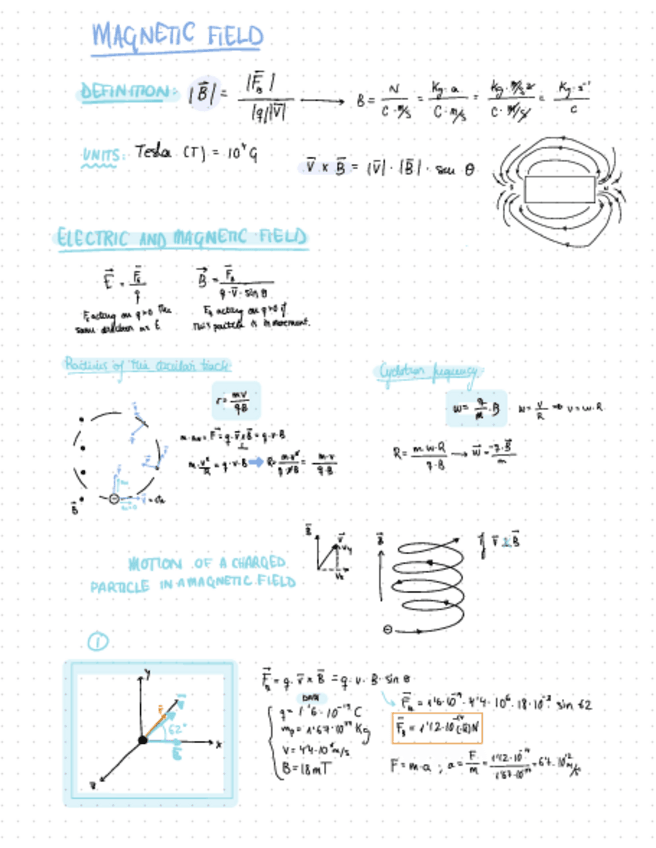 MAGNETIC FIELD
DEFINITION: |B⃗| = |F⃗_B| / |q||V⃗| ⟶ B = N / C·m/s = Kg·a / C·m/s = Kg·m/s² / C·m/s = Kg·s⁻¹ / C
UNITS: Tesla (T) = 10⁴ G
V̅ x B̅ = |V̅| · |B̅| · sen θ
S N
ELECTRIC AND MAGNETIC FIELD
E⃗ = F⃗_E / q
B⃗ = F⃗_B / q·V̅·sin θ
F_E acting on q>0 the
same direction as E
F_B acting on q>0 if
this particle is in movement.
Radius of the circular track
r = mv / qB
m·a = F⃗ = q·v̅xB̅ = q·v·B
m·v²/R = q·v·B ➡ R = m·v² / q·v·B = m·v / q·B
B⃗
Cyclotron frequency
w = q/m · B
w = v/R ⇒ v = w·R
R = m·w·R / q·B ⟶ w⃗ = -q·B⃗ / m
MOTION OF A CHARGED
PARTICLE IN A MAGNETIC FIELD
B⃗ V⃗ Vy Vx
B⃗
V̅ B⃗
①
y
62°
B⃗
x
z
F⃗_B = q·v̅ x B̅ = q·v·B·sin θ
DATA
q = 1'6·10⁻¹⁹ C
mp = 1'67·10⁻²⁷ Kg
V = 4'4·10⁶ m/s
B = 18mT
F⃗_B = 1'6·10⁻¹⁹·4'4·10⁶·18·10⁻³ sin 62
F⃗_B = 1'12·10⁻¹⁴ (-k̂) N
F = m·a ; a = F/m = 1'12·10⁻¹⁴ / 1'67·10⁻²⁷ = 6'7·10¹² m/s²